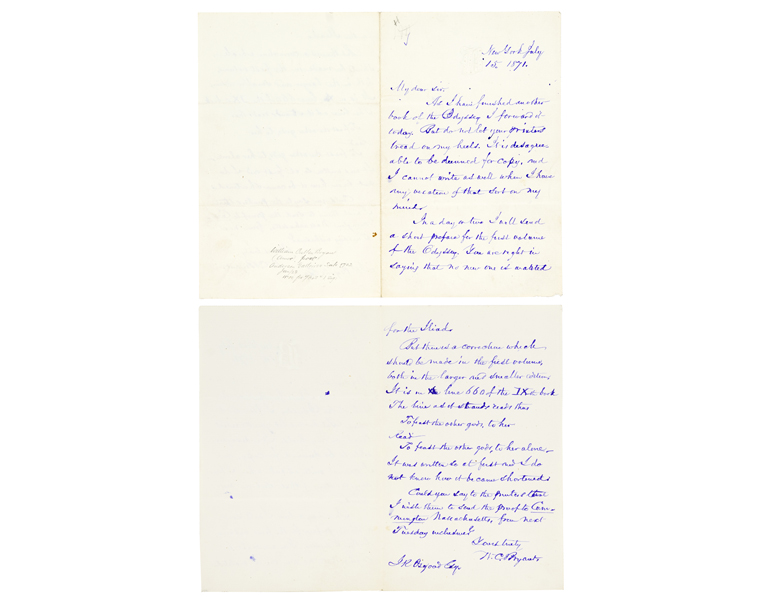 New York July
1st, 1871.
My dear sir.
As I have finished another
book of the Odyssey I forward it
today. But do not let your printers
tread on my heels. It is disagree-
able to be dunned for copy, and
I cannot write as well when I have
any vexation of that sort on my
mind.
In a day or two I will send
a short preface for the first volume
of the Odyssey. You are right in
saying that no new one is wanted
for the Iliad.
But there is a correction which
should be made in the first volume,
both in the larger and smaller edition.
It is in line 660 of the IXth book
The line as it stands reads thus
To feast the other gods, to her
read
To feast the other gods, to her alone,
It was written so at first and I do
not know how it became shortened.
Could you say to the printers that
I wish them to send the proof to Cum-
mington Massachusetts, from next
Tuesday inclusive?
Yours truly
W. C. Bryant.
J. R. Osgood Esq.
William